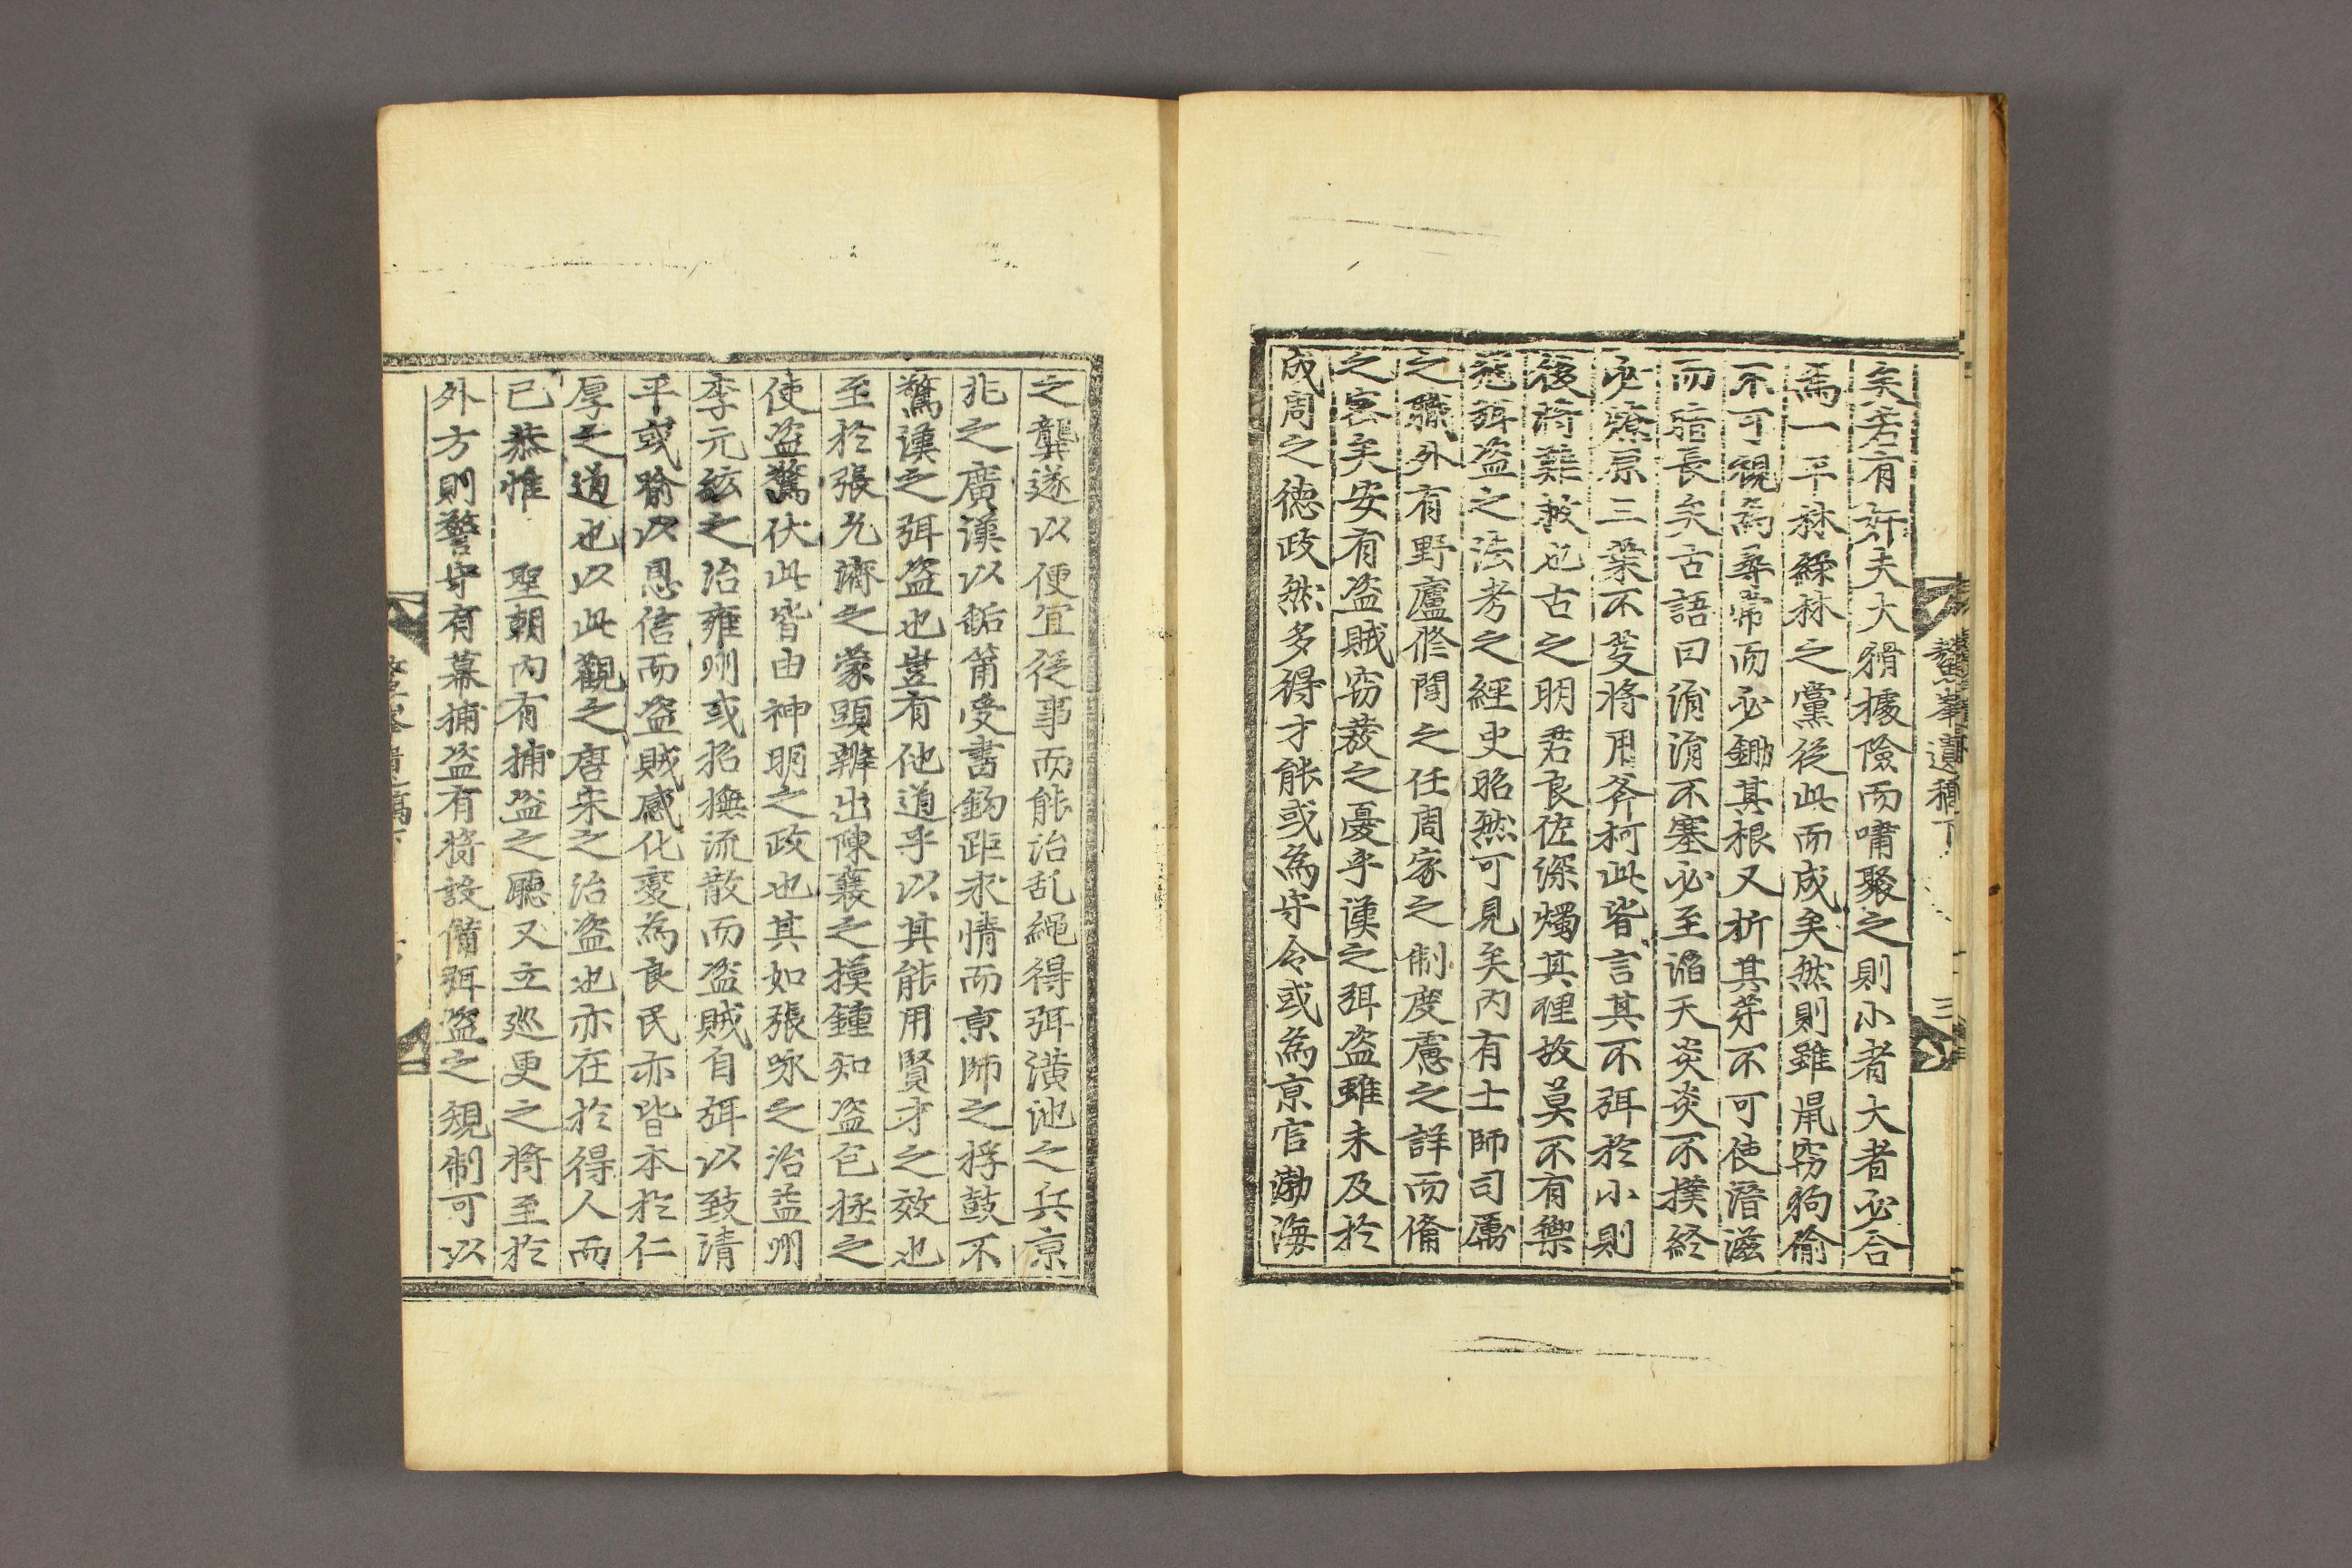 鰲峯遺稿下
三
矣若有奸夫大猾據險而嘯聚之則小者大者必合
爲一平林綠林之黨從此而成矣然則雖鼠窃狗偷
不可視爲尋常而必鋤其根又折其芽不可使滋
而暗長矣古語曰涓涓不塞必至滔天炎炎不撲終
必燎原三葉不芟將用斧柯此皆言其不弭於小則
後將難救也古之明君良佐深燭其理故莫不有禦
冦弭盗之法考之經史昭然可見矣內有士師司厲
之職外有野廬修閭之任周家之制度慮之詳而俻
之密矣安有盗賊窃發之憂乎漢之弭盗雖未及於
成周之德政然多得才能或爲守令或爲京官渤海
之龔遂以便宜從事而能治乱繩得弭潢池之兵京
兆之廣漢以缿筩受書鈎距求情而京師之桴鼓不
驚漢之弭盗也豈有他道乎以其能用賢才之效也
至於張允濟之蒙頭辨出陳襄之摸鍾知盗苞拯之
使盗驚伏此皆由神明之政也其如張咏之治益州
李元紘之治雍州或招撫流散而盗賊自弭以致清
平或喻以恩信而盗賊感化變爲良民亦皆本於仁
厚之道也以此觀之唐宋之治盗也亦在於得人而
已恭惟　聖朝內有捕盗之廳又立廵更之將至於
外方則警守有幕捕盗有將設備弭盗之規制可以